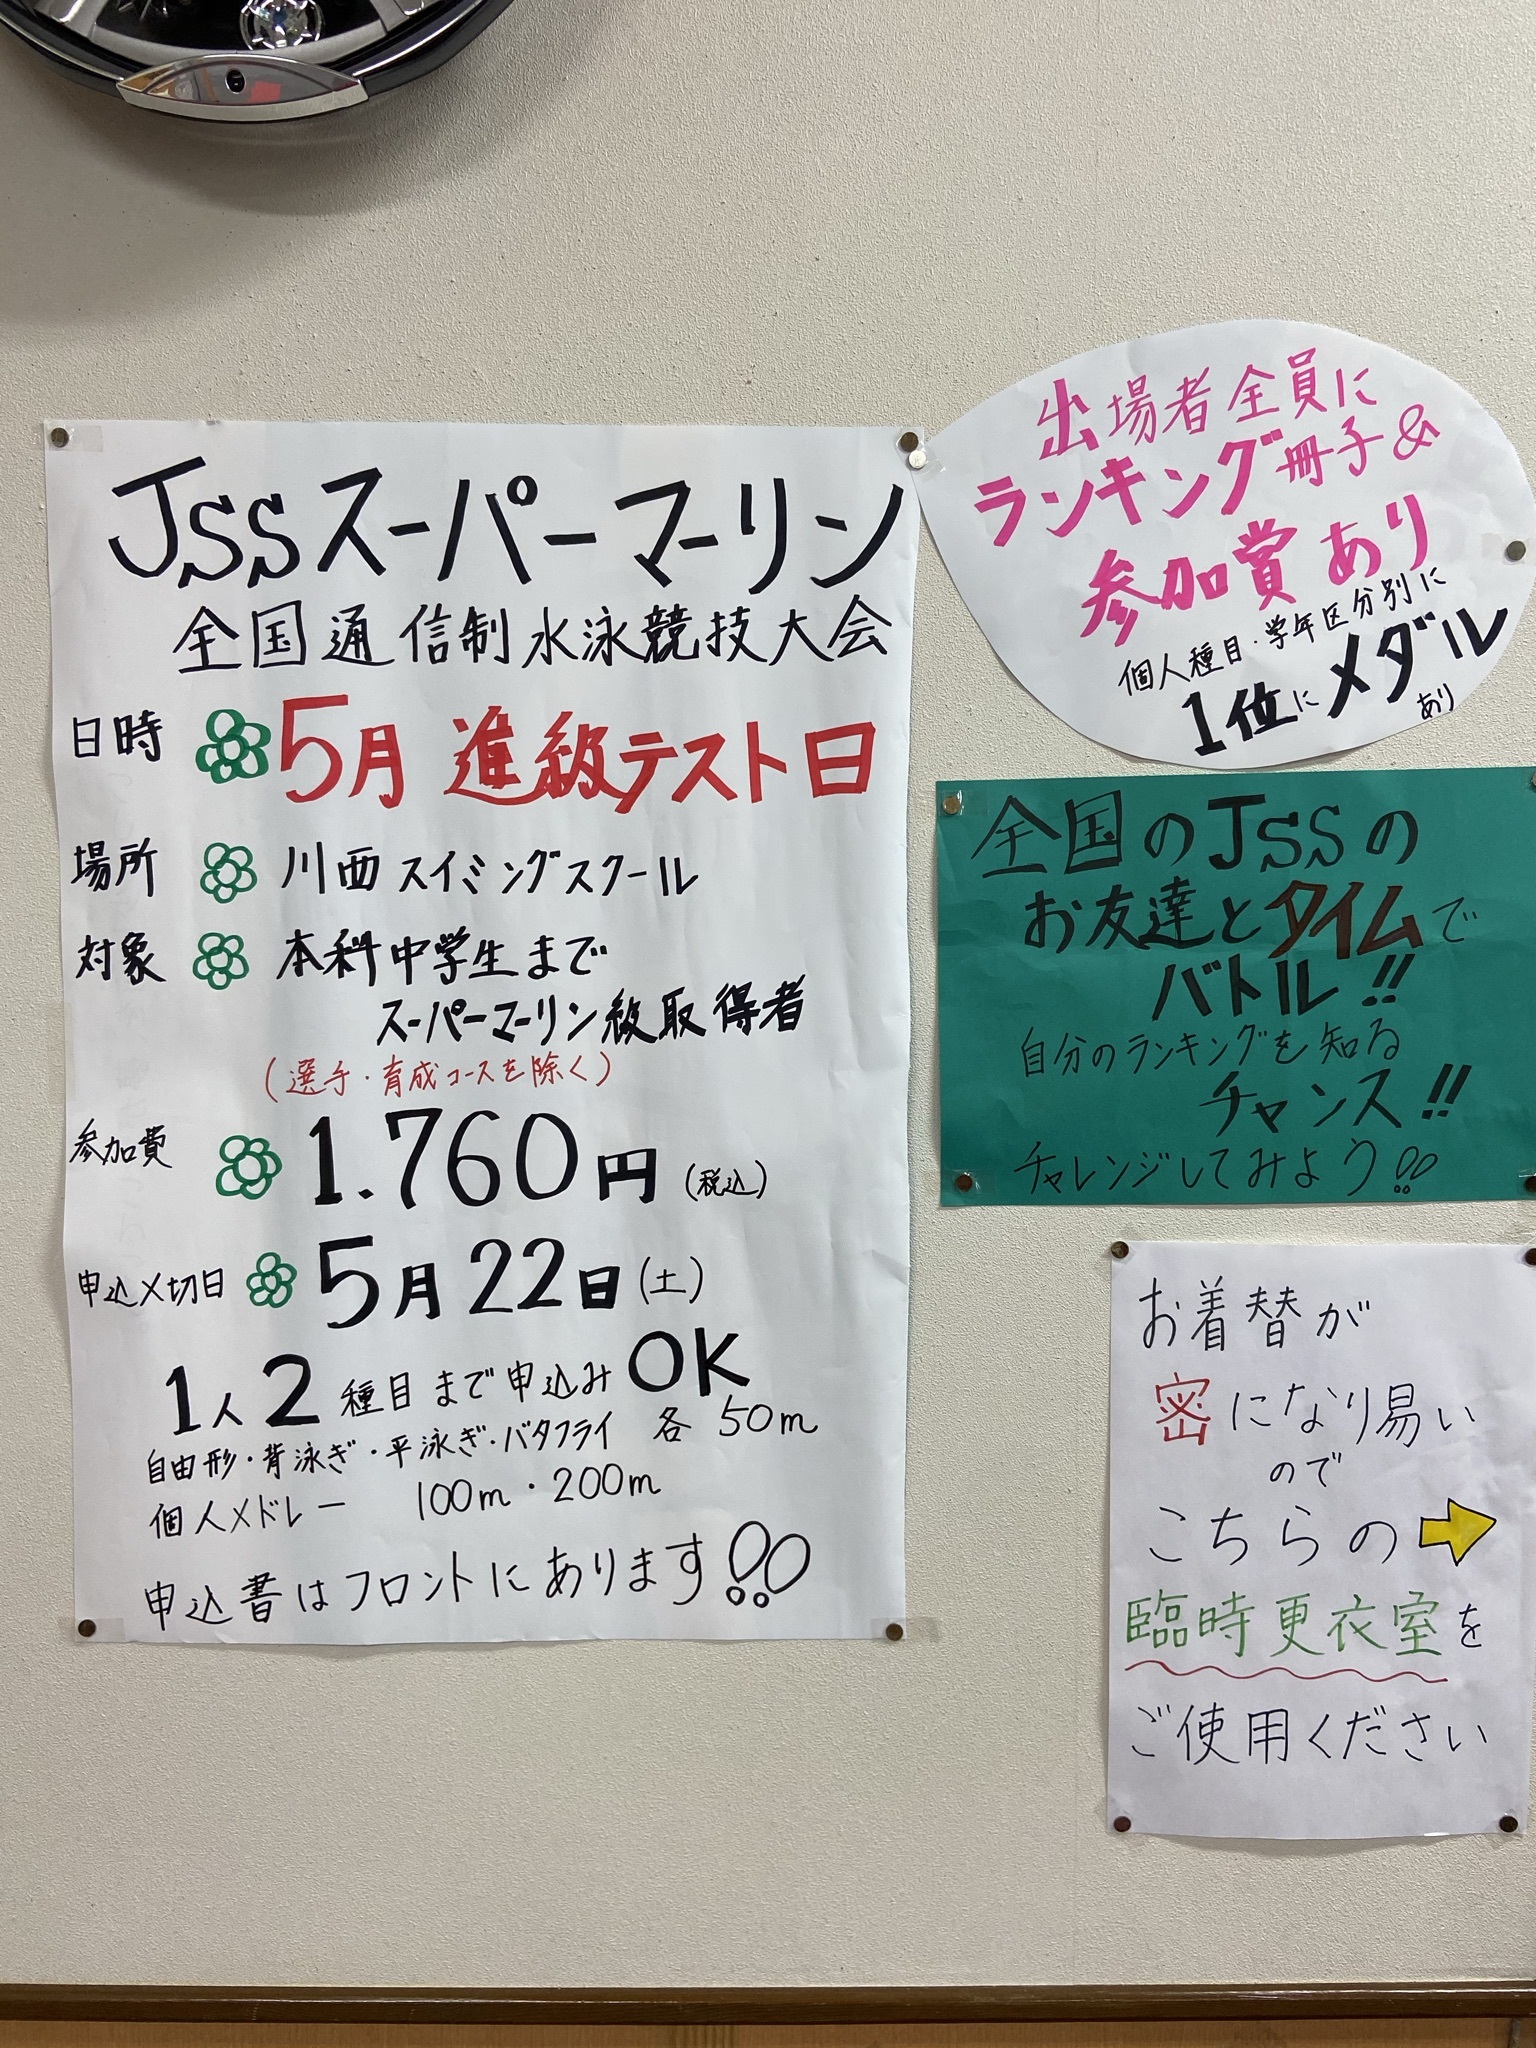 JSSスーパーマーリン
全国通信制水泳競技大会
日時 5月 進級テスト日
場所 川西スイミングスクール
対象 本科中学生まで
スーパーマーリン級取得者
(選手・育成コースを除く)
参加費 1.760円(税込)
申込〆切日 5月22日(土)
1人2種目まで申込みOK
自由形・背泳ぎ・平泳ぎ・バタフライ 各50m
個人メドレー 100m・200m
申込書はフロントにあります!!
出場者全員に
ランキング冊子&
参加賞あり
個人種目・学年区分別に
1位にメダル
あり
全国のJSSの
お友達とタイムで
バトル!!
自分のランキングを知る
チャンス!!
チャレンジしてみよう!!
お着替が
密になり易い
ので
こちらの➡
臨時更衣室を
ご使用ください